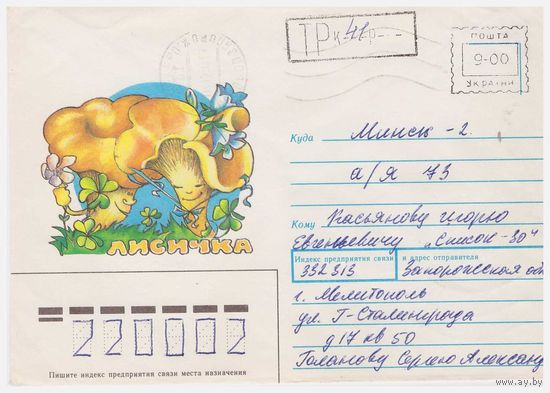 ТР к. 41 р.
ПОШТА
9-00
УКРАЇНИ
Куда Минск - 2.
а/я 73
Кому Касьянову Игорю
Евгеньевичу "Список - 30"
Индекс предприятия связи и адрес отправителя
332313 Запорожская об
г. Мелитополь
ул. Г-Сталинграда
д 17 кв 50
Голанову Сергею Александ
ЛИСИЧКА
220002
Пишите индекс предприятия связи места назначения
www.ay.by